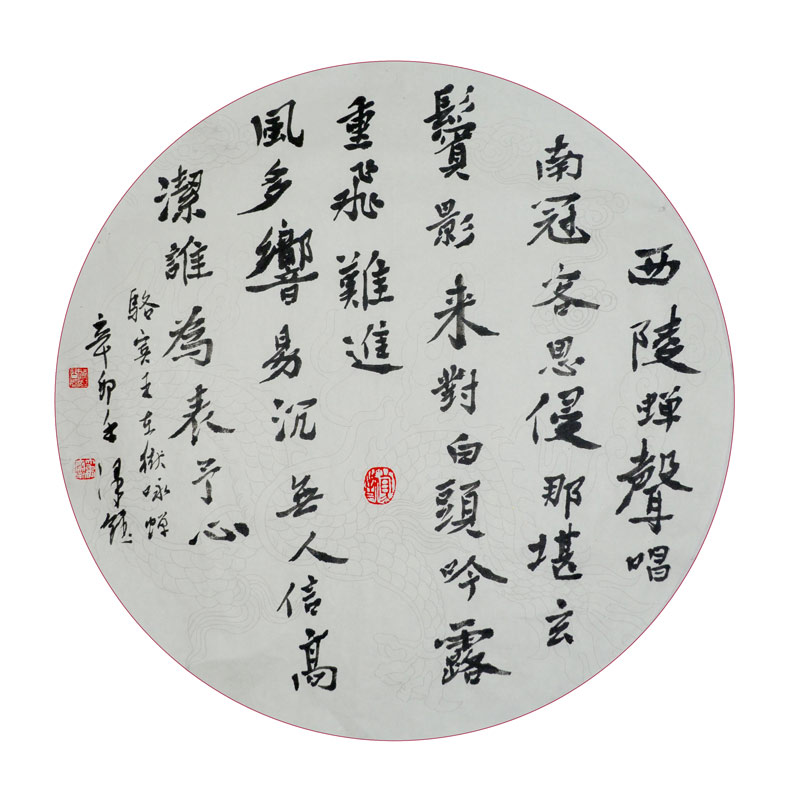 西陵蝉聲唱
南冠客思侵那堪玄
鬢影来對白頭吟露
重飛難進
風多響易沉無人信高
潔誰為表予心
駱賓王在獄咏蝉
辛卯